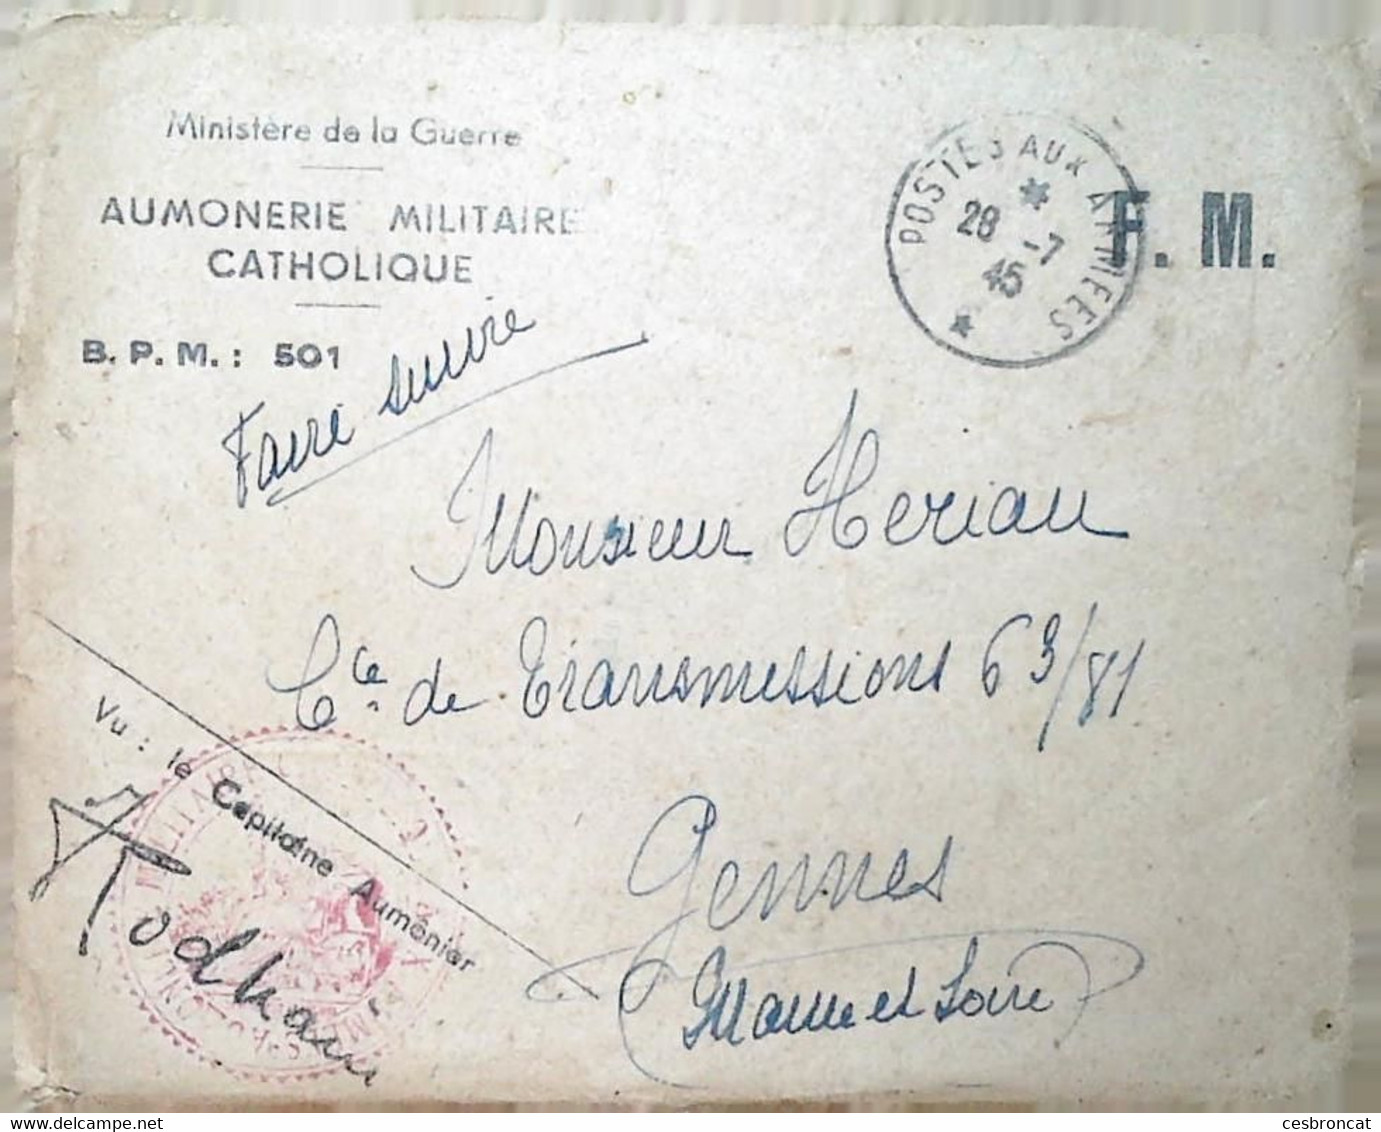 Ministère de la Guerre
AUMONERIE MILITAIRE
CATHOLIQUE
B. P. M. : 501
POSTES AUX ARMEES
28 -7
45
F. M.
Faire suivre
Monsieur Heriau
Cie de Transmissions 63/81
Gennes
(Maine et Loire)
Vu : le Capitaine Aumônier
delcampe.net
cesbroncat